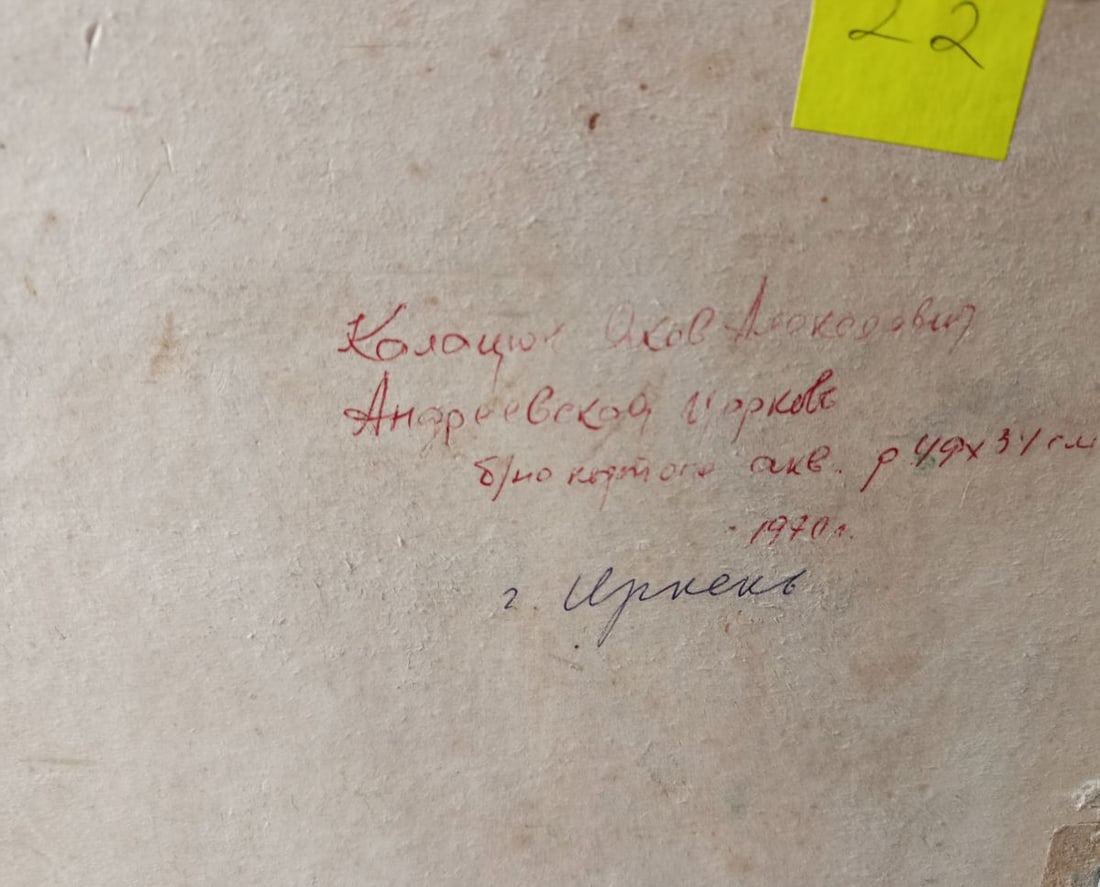 22
Калацюк Яков Александрович
Андреевская церковь
б/на картоне акв. р 49х34 см
1970 г.
г. Ирпень